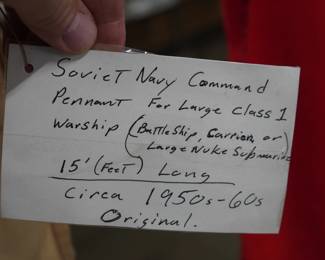 Soviet Navy Command
Pennant For Large Class 1
Warship (Battleship, Carrier, or
Large Nuke Submarine)
15' (Feet) Long
Circa 1950s-60s
Original.